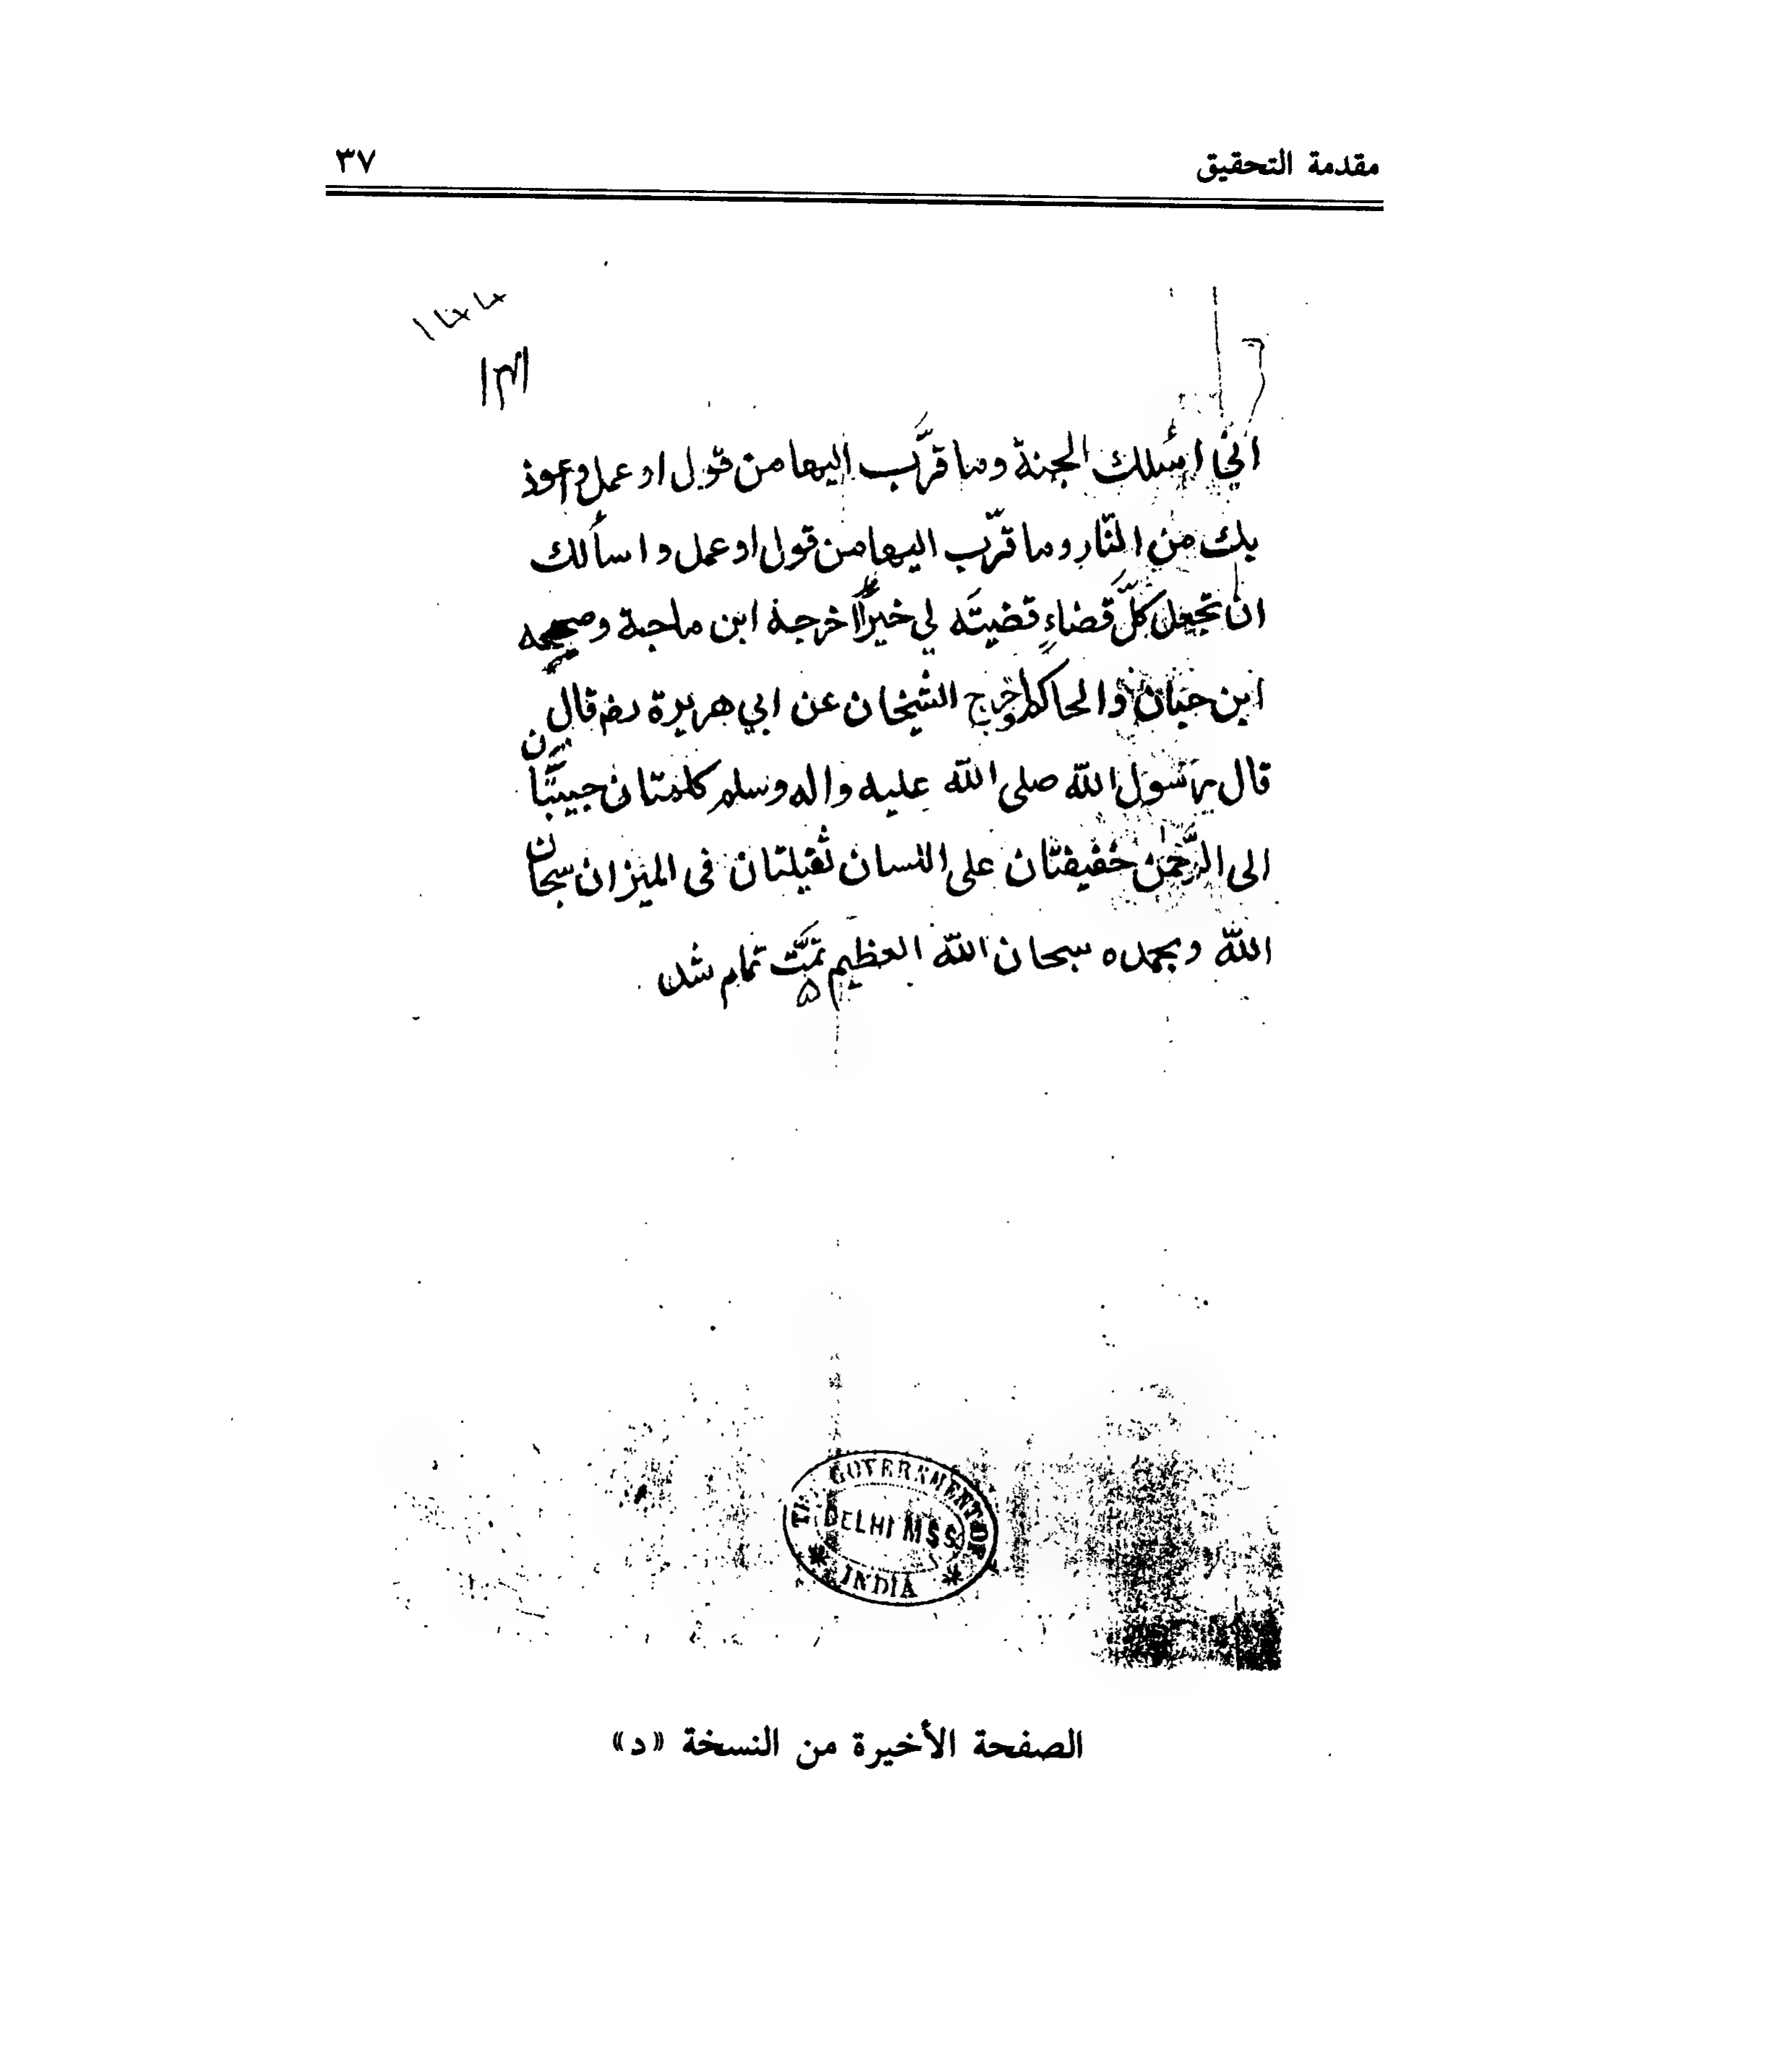 مقدمة التحقيق ٣٧
اني اسٔلك الجنة وما قرَّب اليها من قول او عمل واعوذ
بك من النّار وما قرّب اليها من قول او عمل واسألك
ان تجعل كلَّ قضاءٍ قضيتَه لي خيرًا اخرجه ابن ماجة وصححه
ابن حبان والحاكم واخرج الشيخان عن ابي هريرة رضہ قال
قال رسول الله صلى الله عليه واله وسلم كلمتان حبيبتان
الى الرَّحمٰن خفيفتان على اللسان ثقيلتان فى الميزان سبحان
الله وبحمده سبحان الله العظيم تمَّت تمام شد
THE GOVERNMENT OF
DELHI MSS
INDIA
الصفحة الأخيرة من النسخة «د»